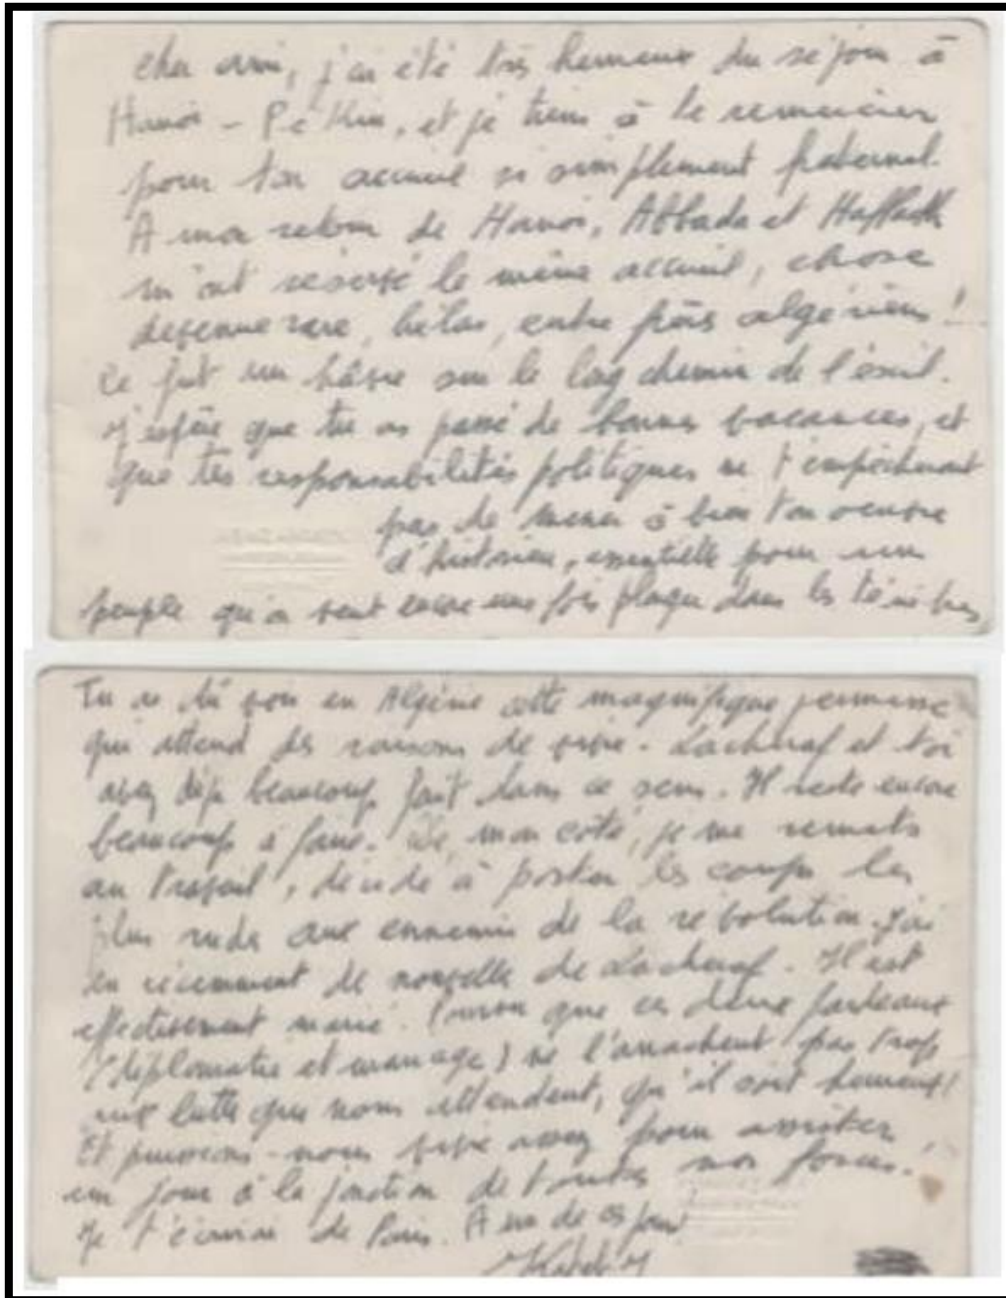 cher ami, j'ai été très heureux du séjour à
Hanoi - Pékin, et je tiens à te remercier
pour ton accueil si simplement fraternel.
A mon retour de Hanoi, Abbada et Haffadh
m'ont réservé le même accueil, chose
devenue rare, hélas, entre frères algériens!
Ce fut un hâvre sur le long chemin de l'exil.
J'espère que tu as passé de bonnes vacances, et
que tes responsabilités politiques ne t'empêcheront
pas de mener à bien ton oeuvre
d'historien, essentielle pour un
peuple qu'on veut encore une fois plonger dans les ténèbres
Tu as dû voir en Algérie cette magnifique jeunesse
qui attend des raisons de vivre. Lacheraf et toi
avez déjà beaucoup fait dans ce sens. Il reste encore
beaucoup à faire. De mon côté, je me remets
au travail, décidé à porter les coups les
plus rudes aux ennemis de la révolution. J'ai
eu récemment de nouvelle de Lacheraf. Il est
effectivement marié. Pourvu que ces deux fardeaux
(diplomatie et mariage) ne l'arrachent pas trop
aux luttes que nous attendent, qu'il soit heureux!
Et puissions-nous vivre assez pour assister
un jour à la jonction de toutes nos forces!
Je t'écrirai de Paris. A un de ces jours